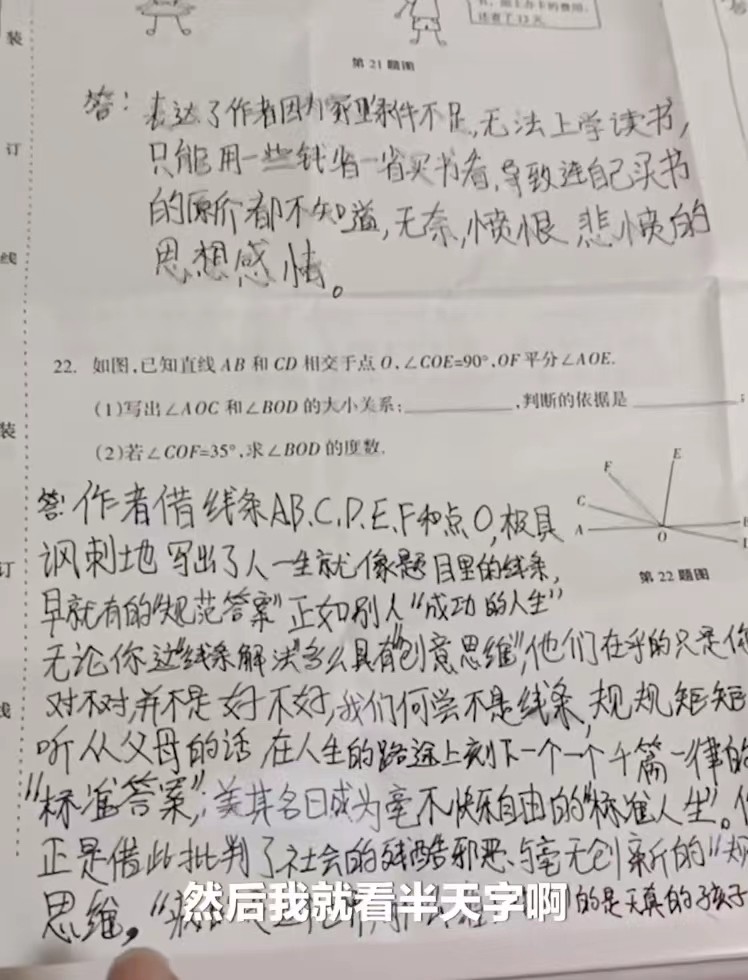 装
订
线
装
订
线
书，加上办卡的费用，
还省了13元.
第21题图
答：表达了作者因为家里条件不足,无法上学读书,
只能用一些钱省一省买书看,导致连自己买书
的原价都不知道,无奈,愤恨,悲愤的
思想感情。
22. 如图,已知直线AB和CD相交于点O,∠COE=90°,OF平分∠AOE.
(1)写出∠AOC和∠BOD的大小关系:__________,判断的依据是__________;
(2)若∠COF=35°,求∠BOD的度数.
F
E
C
A
O
第22题图
答:作者借线条AB、C、D、E、F和点O,极具
讽刺地写出了人一生就像题目里的线条,
早就有的"规范答案"正如别人"成功的人生"
无论你这"线条解法"多么具有"创意思维",他们在乎的只是你
对不对,并不是好不好,我们何尝不是线条,规规矩矩
听从父母的话,在人生的路途上刻下一个一个千篇一律的
"标准答案";美其名曰成为毫不快乐自由的"标准人生"。
正是借此批判了社会的残酷邪恶、与毫无创新的"规
思维。"
的是天真的孩子
然后我就看半天字啊